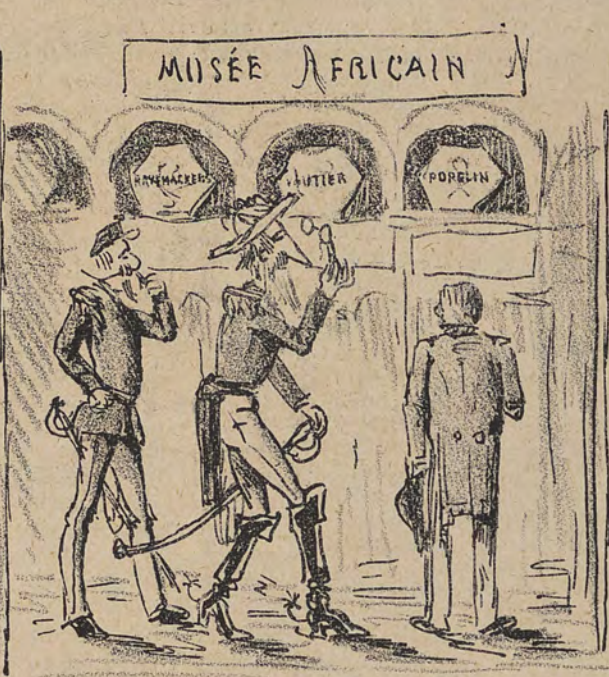 MUSÉE AFRICAIN
RAYEMACKER
WAUTIER
POPELIN